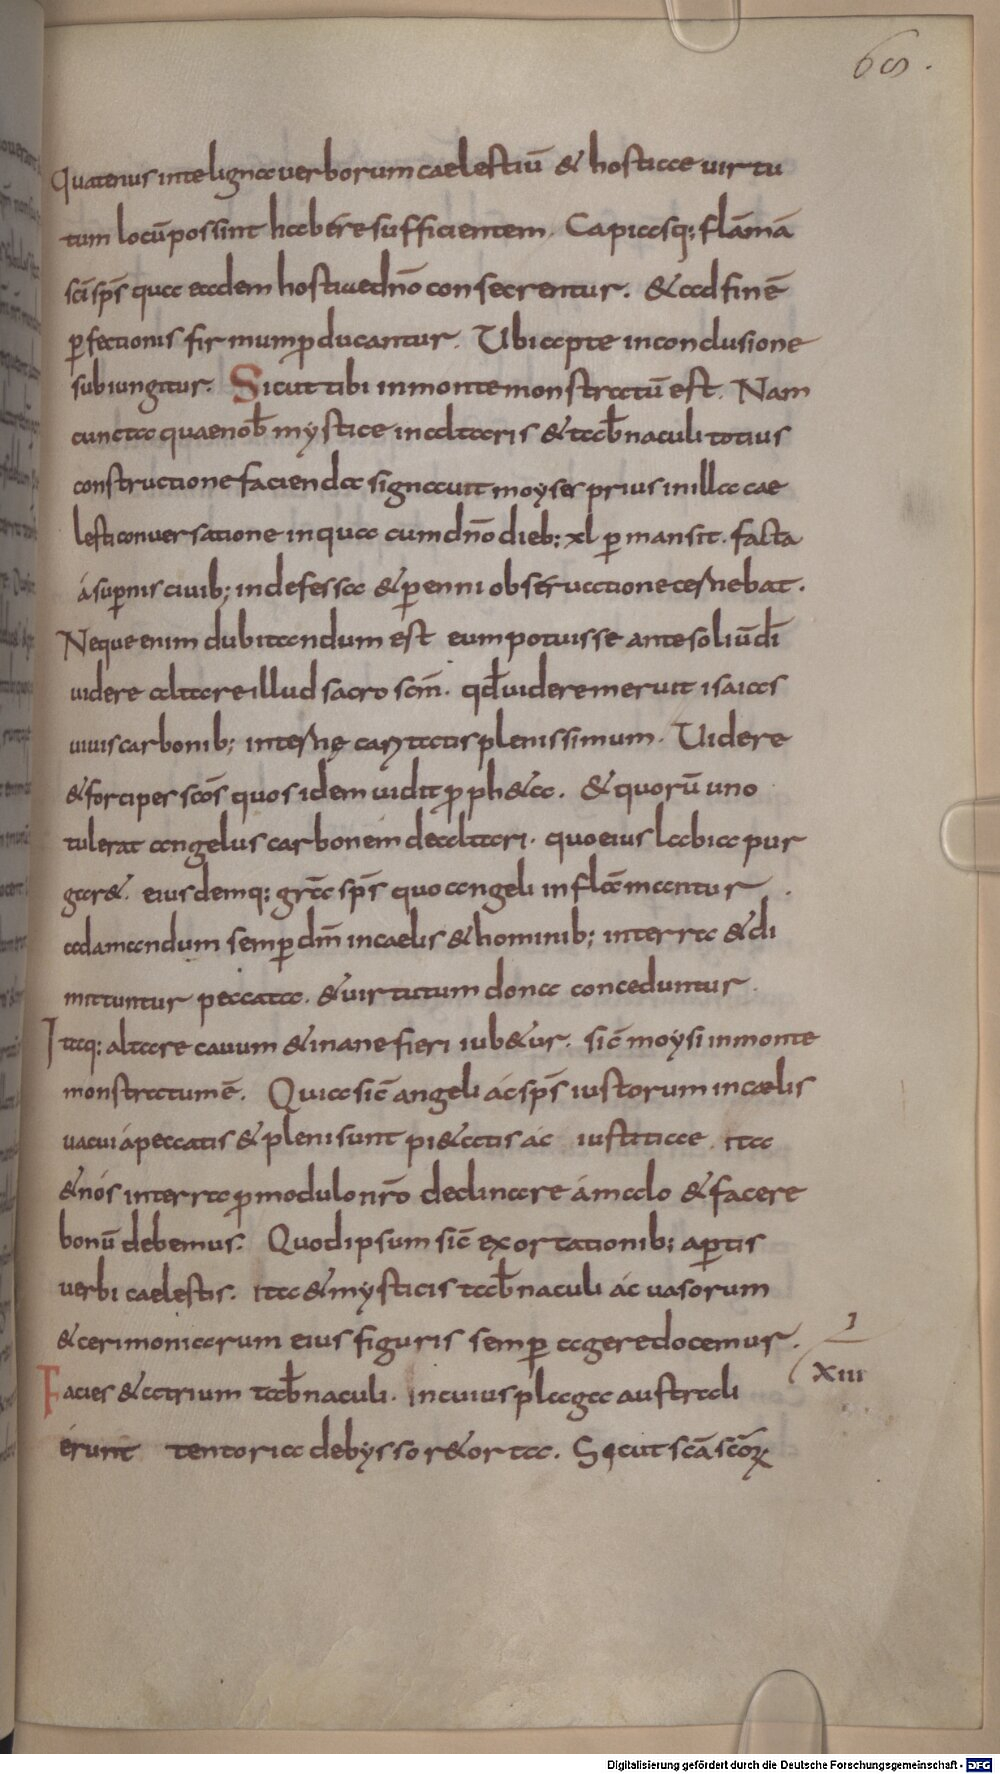 68.
Quatenus inte ligna uerborum caelestiū & hostiae uirtu
tum locū possint habere sufficientem. Capiasq; flāmā
sc̄i sp̄s qua eadem hostiae dn̄o consecrentur. & ad finē
ꝑfectionis firmum ꝑducantur. Ubi apte in conclusione
subiungitur. Sicut tibi in monte monstratū est. Nam
cuncta quae nob̄ mystice in altaris & tab̄naculi totius
constructione facienda signauit moyses prius in illa cae
lesti conuersatione in qua cum dn̄o dieb; xl ꝑmansit. facta
á suꝑnis ciuib; indefessa & ꝑenni obseruatione cernebat.
Neque enim dubitandum est eum potuisse ante soliū dī
uidere altare illud sacrosc̄m. qd̄ uidere meruit isaias
uiuis carbonib; internę caritatis plenissimum. Uidere
& forcipes sc̄os quos idem uidit ꝓph&a. & quorū uno
tulerat angelus carbonem de altari. quo eius labia pur
gar&. eiusdemq; gr̄a sp̄s quo angeli inflammantur .
ad amandum semꝑ dm̄ in caelis & hominib; in terra & di
mittuntur peccata. & uirtutum dona conceduntur.
Itaq; altare cauum & inane fieri iub&ur. sic̄ moysi in monte
monstratum ē. Quia sic̄ angeli ác sp̄s iustorum in caelis
uacui á peccatis & pleni sunt pi&atis ác iustitiae. ita
& nós in terra ꝓ modulo nr̄o declinare á malo & facere
bonū debemus. Quod ipsum sic̄ exortationib; aꝑtis
uerbi caelestis. ita & mysticis tab̄naculi ác uasorum
& cerimoniarum eius figuris semꝑ agere docemur.
XIII
Facies & atrium tab̄naculi. in cuius plaga australi
érunt tentoria de bysso r&orta. Sicut sc̄a sc̄oꝝ
Digitalisierung gefördert durch die Deutsche Forschungsgemeinschaft - DFG